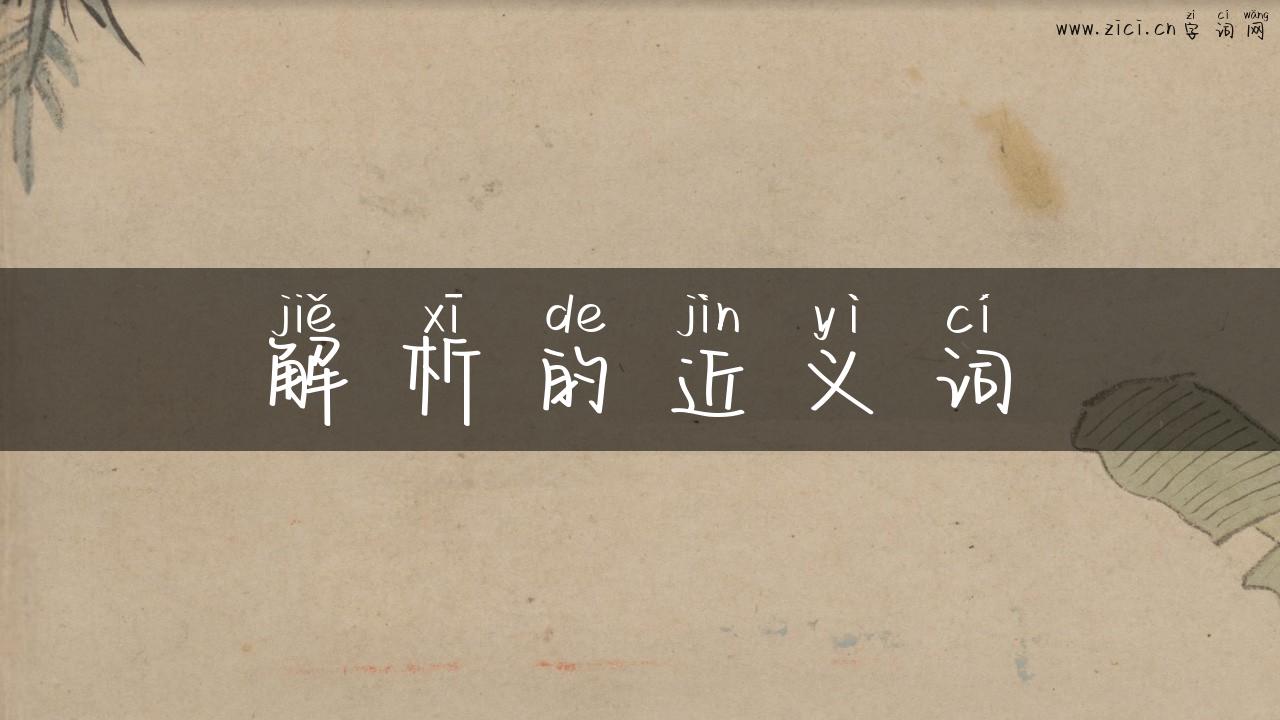 zì cí wǎng
www.zici.cn 字词网
jiě xī de jìn yì cí
解析的近义词